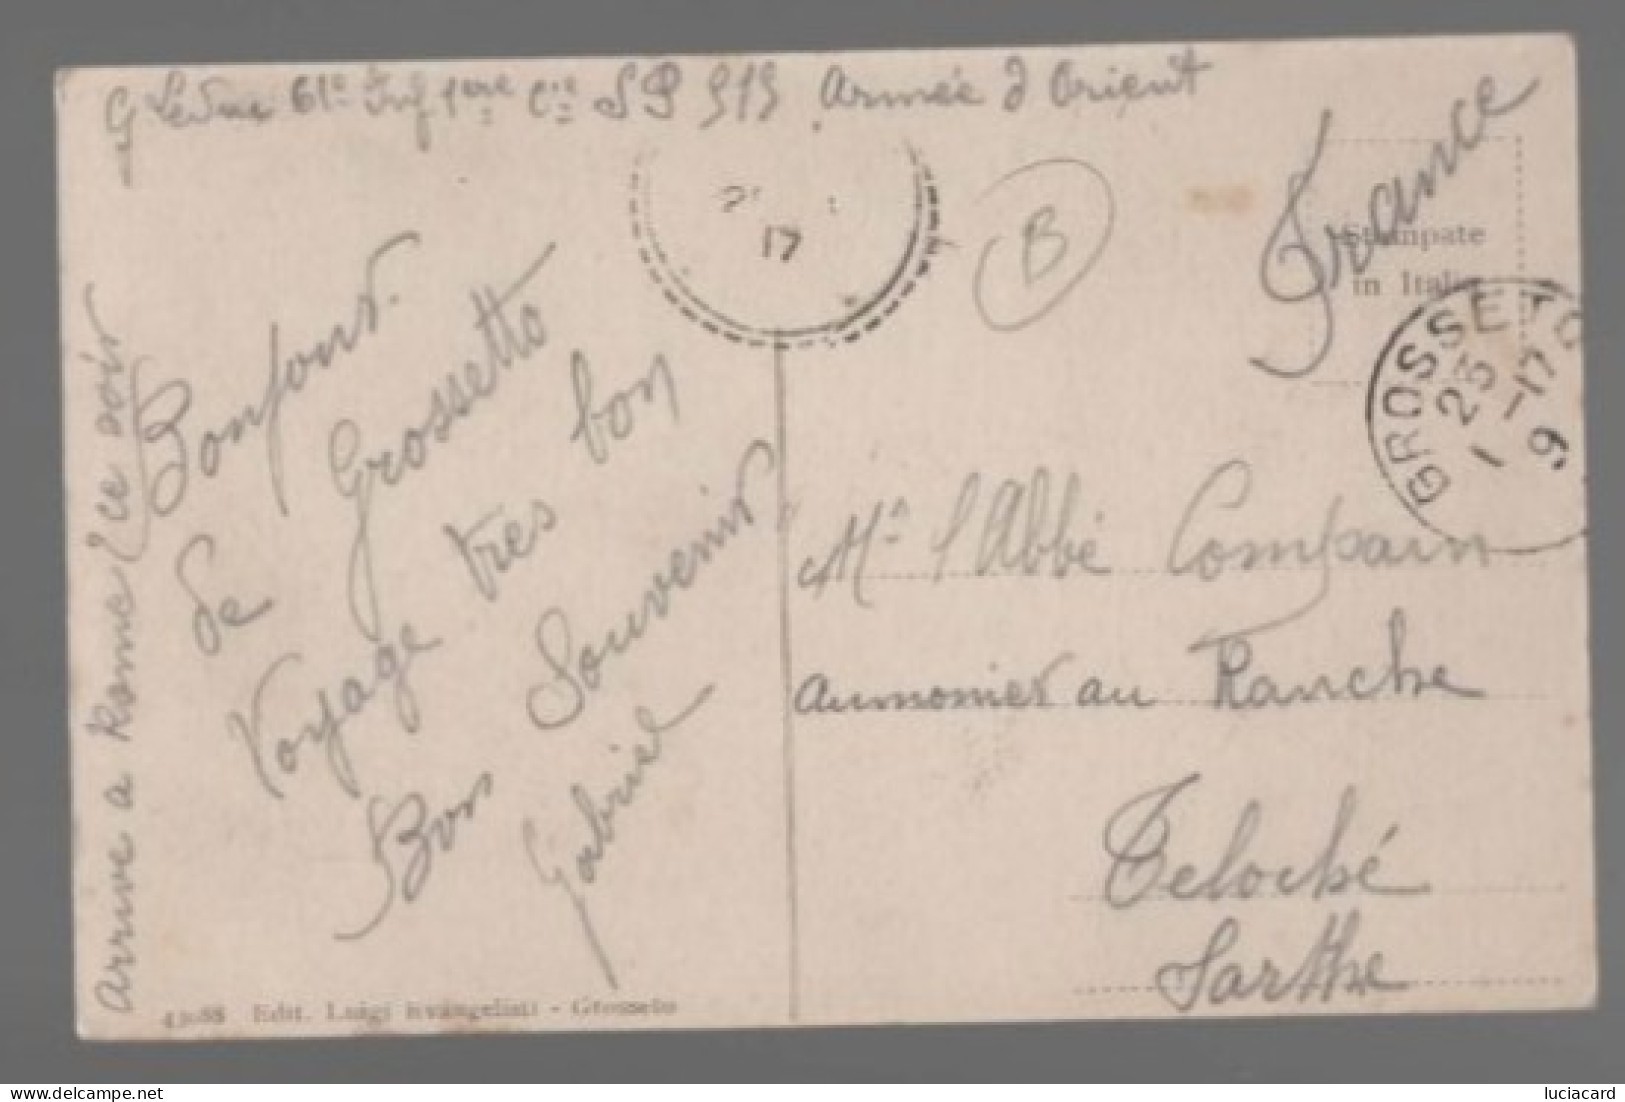 G Leduc 61e Inf 1ere Cie SP 515 Armée d Orient
17
B
France
Stampate
in Italia
GROSSETO
23
1 -17
9
Arrive a Rome ce soir
Bonjour.
de Grossetto
Voyage très bon
Bon Souvenir
Gabriel
Mr l'Abbé Compain
Aumonier au Ranche
Teloché
Sarthe
Edit. Luigi Evangelisti - Grosseto
luciacard